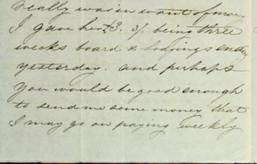 really was in want of money
I gave her £3. 3/ being three
weeks board & lodgings ending
yesterday. and perhaps
you would be good enough
to send me some money that
I may go on paying weekly